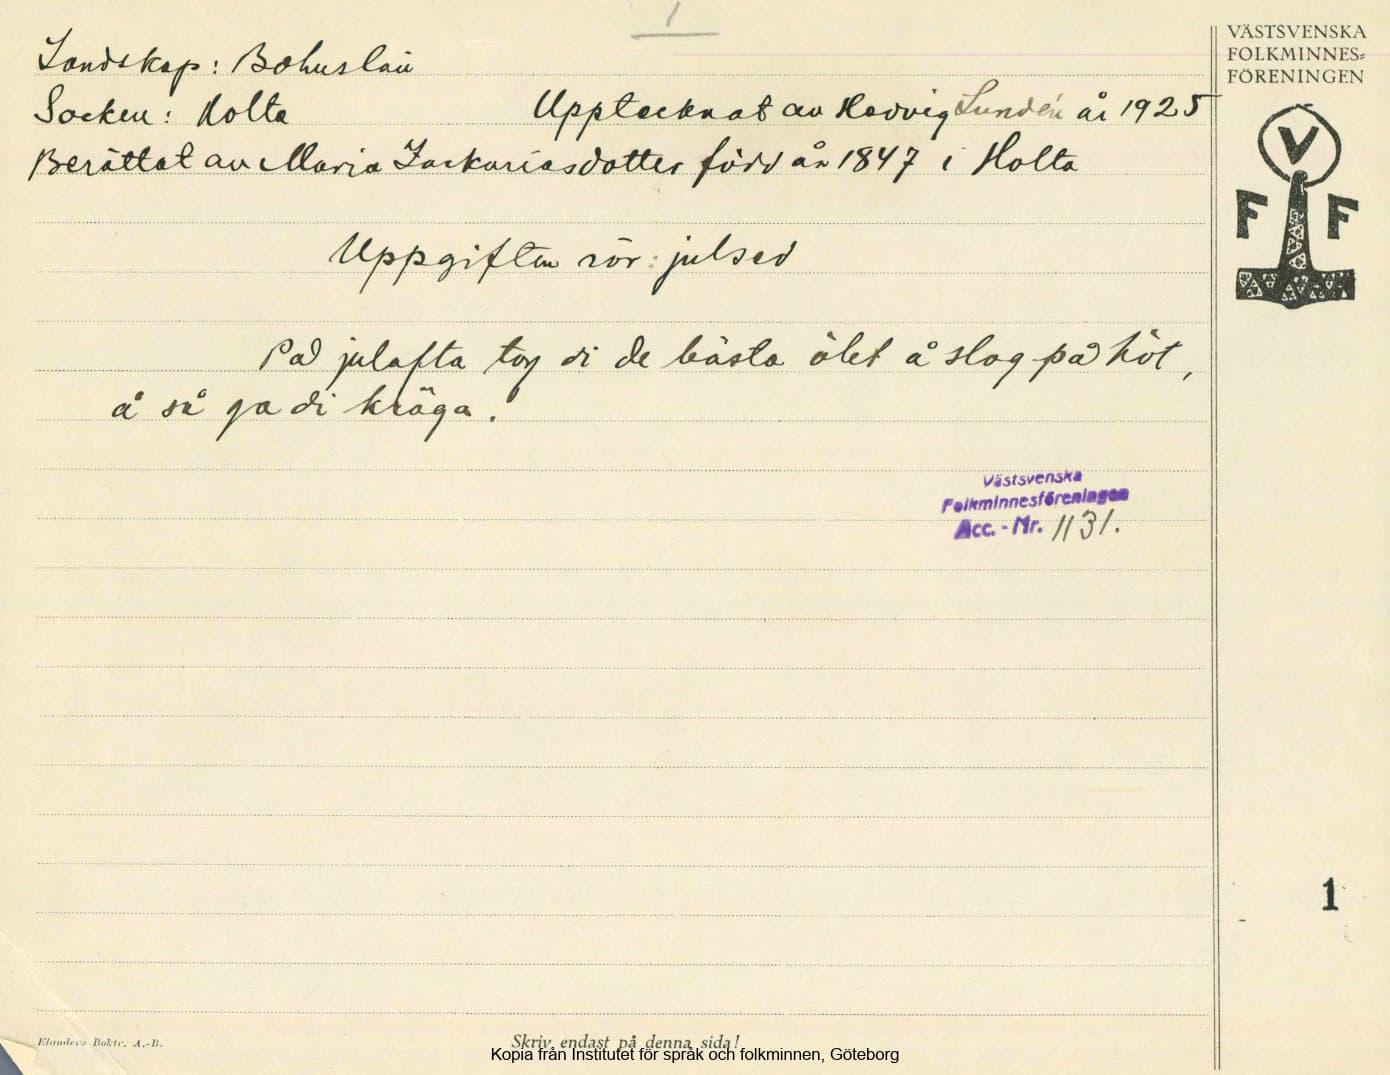 1
VÄSTSVENSKA
FOLKMINNES=
FÖRENINGEN
V
F F
Landskap: Bohuslän
Socken: Holta Upptecknat av Hedvig Lundén år 1925
Berättat av Maria Zackariasdotter född år 1847 i Holta
Uppgiften rör: julsed
Pad julafta tog di de bästa ölet å slog pad höt,
å så ga di kräga.
Västsvenska
Folkminnesföreningen
Acc. - Nr. 1131.
1
Elanders Boktr. A.-B.
Skriv endast på denna sida!
Kopia från Institutet för språk och folkminnen, Göteborg